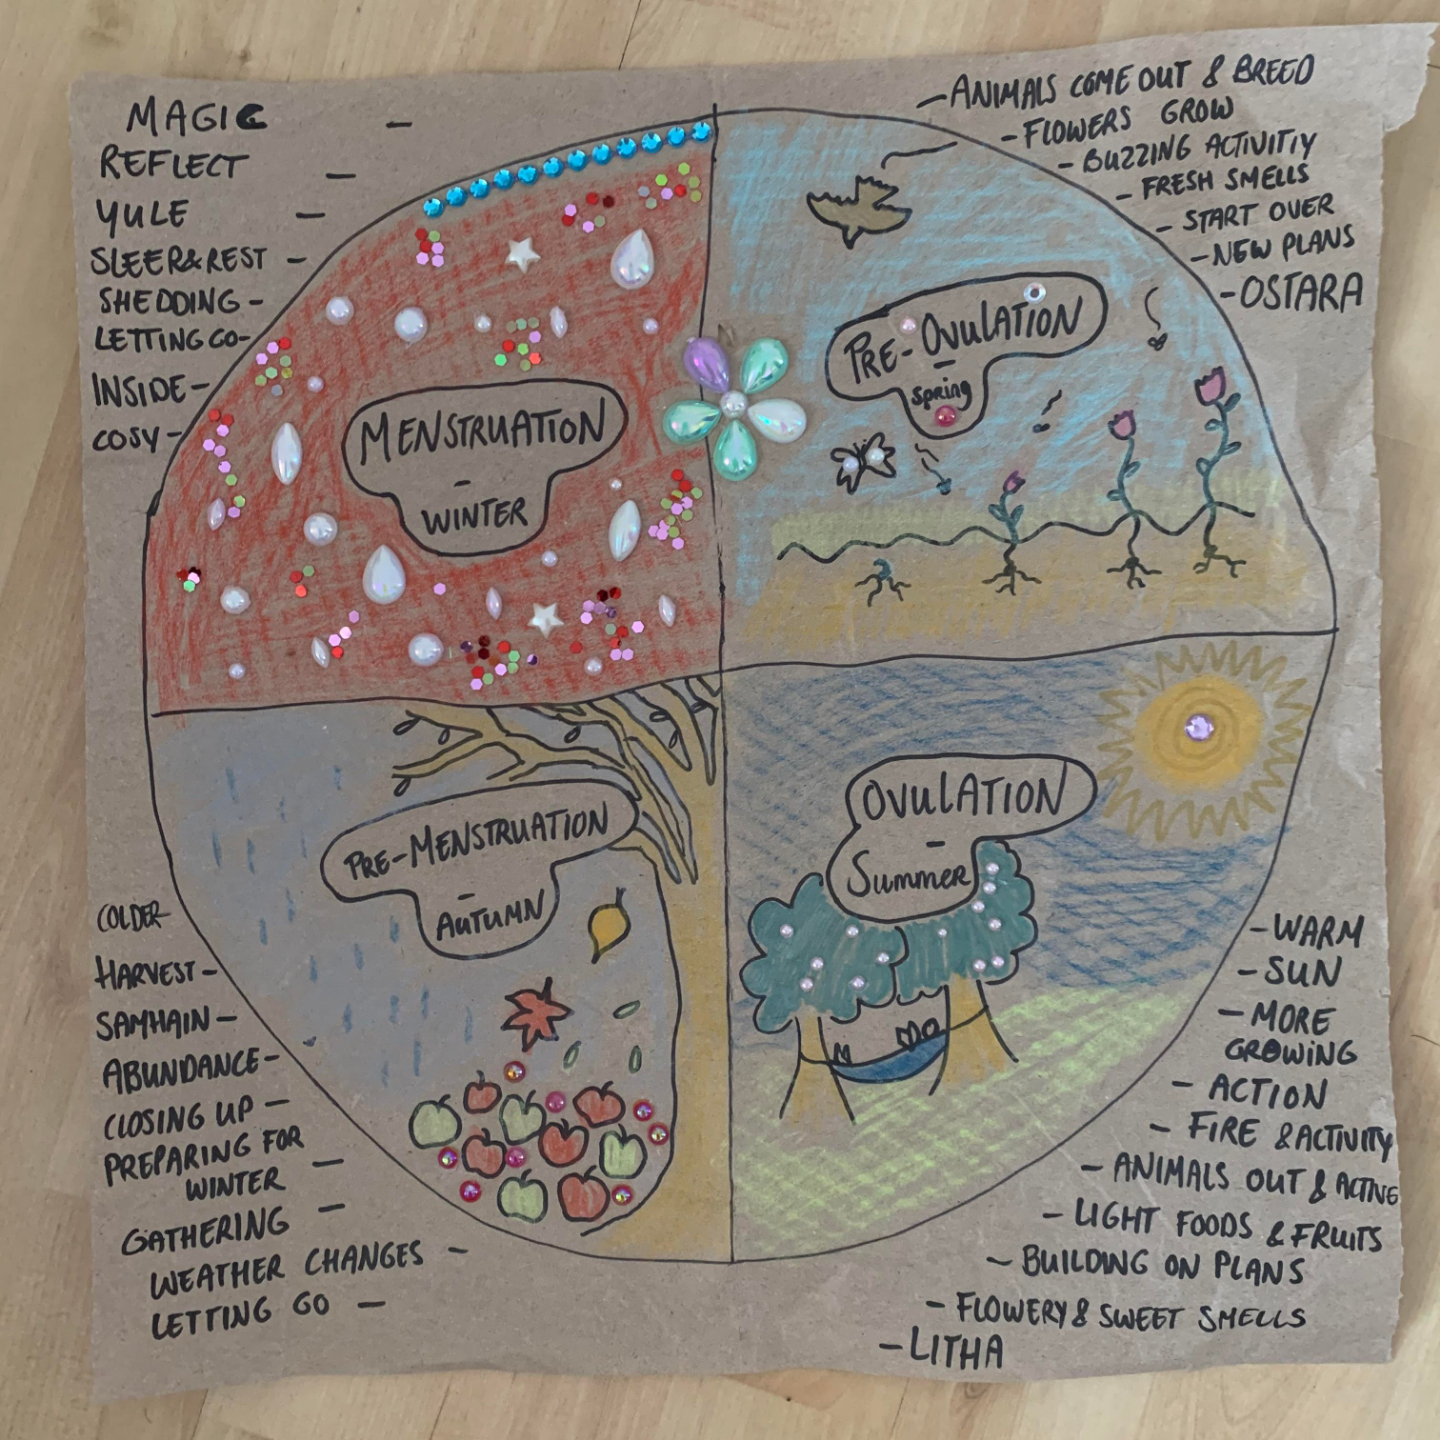 MAGIC -
REFLECT -
YULE -
SLEEP & REST -
SHEDDING -
LETTING GO -
INSIDE -
COSY -
MENSTRUATION
-
WINTER
- ANIMALS COME OUT & BREED
- FLOWERS GROW
- BUZZING ACTIVITIY
- FRESH SMELLS
- START OVER
- NEW PLANS
- OSTARA
PRE-OVULATION
-
Spring
PRE-MENSTRUATION
-
AUTUMN
COLDER -
HARVEST -
SAMHAIN -
ABUNDANCE -
CLOSING UP -
PREPARING FOR
WINTER -
GATHERING -
WEATHER CHANGES -
LETTING GO -
OVULATION
-
Summer
- WARM
- SUN
- MORE
GROWING
- ACTION
- FIRE & ACTIVITY
- ANIMALS OUT & ACTIVE
- LIGHT FOODS & FRUITS
- BUILDING ON PLANS
- FLOWERY & SWEET SMELLS
- LITHA